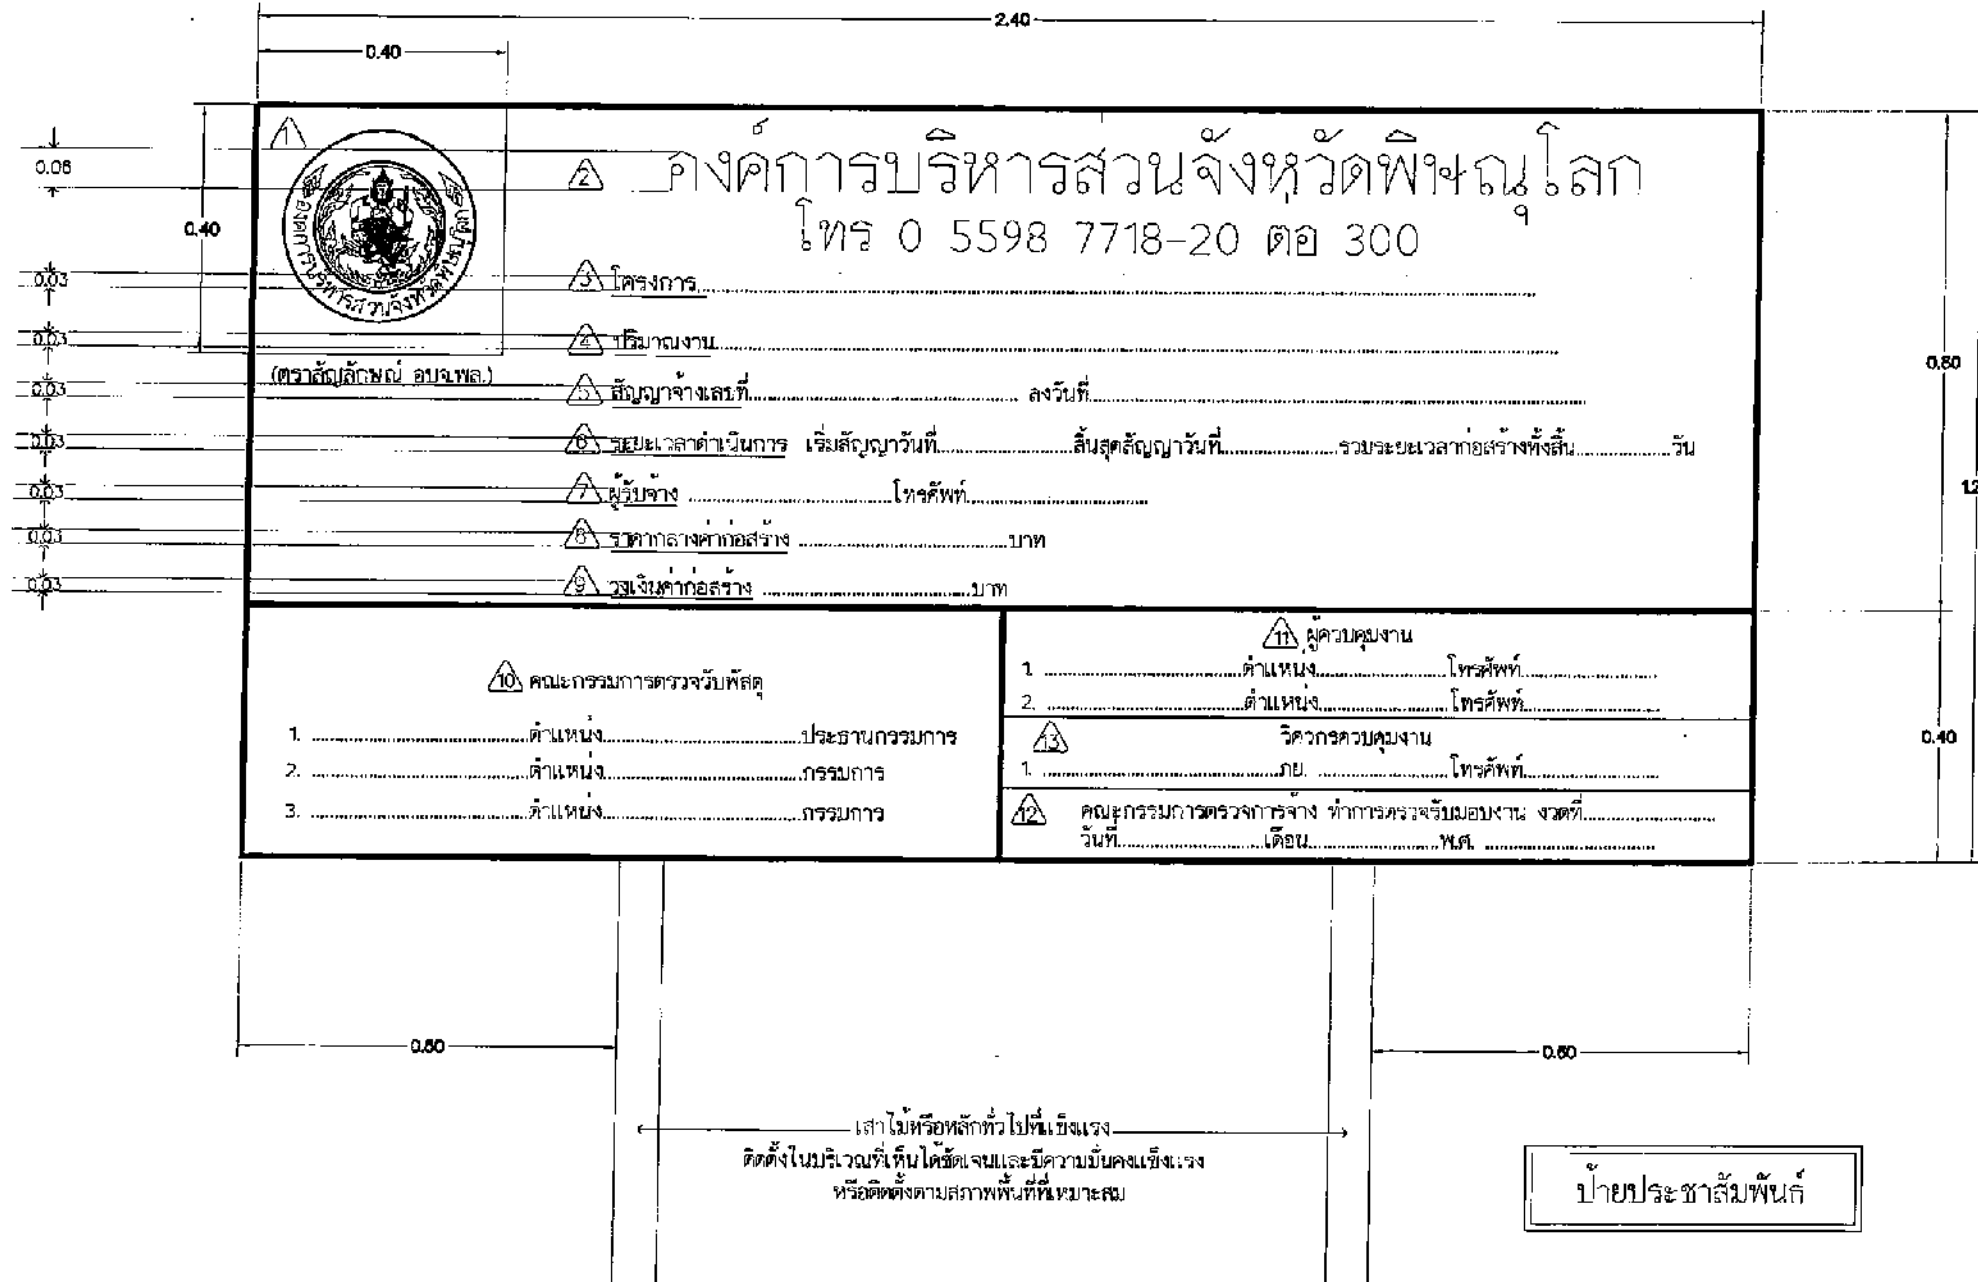 2.40
0.40
1
0.06
2 องค์การบริหารส่วนจังหวัดพิษณุโลก
0.40
องค์การบริหารส่วนจังหวัดพิษณุโลก
โทร 0 5598 7718-20 ต่อ 300
0.03
3 โครงการ
0.03
4 ปริมาณงาน
0.80
(ตราสัญลักษณ์ อบจ.พล.)
0.03
5 สัญญาจ้างเลขที่ ลงวันที่
0.03
6 ระยะเวลาดำเนินการ เริ่มสัญญาวันที่ สิ้นสุดสัญญาวันที่ รวมระยะเวลาก่อสร้างทั้งสิ้น วัน
0.03
7 ผู้รับจ้าง โทรศัพท์
0.03
8 ราคากลางค่าก่อสร้าง บาท
0.03
9 วงเงินค่าก่อสร้าง บาท
10 คณะกรรมการตรวจรับพัสดุ
1. ตำแหน่ง ประธานกรรมการ
2. ตำแหน่ง กรรมการ
3. ตำแหน่ง กรรมการ
11 ผู้ควบคุมงาน
1. ตำแหน่ง โทรศัพท์
2. ตำแหน่ง โทรศัพท์
13 วิศวกรควบคุมงาน
1. ภย. โทรศัพท์
0.40
12 คณะกรรมการตรวจการจ้าง ทำการตรวจรับมอบงาน งวดที่
วันที่ เดือน พ.ศ.
0.60
0.60
เสาไม้หรือหลักทั่วไปที่แข็งแรง
ติดตั้งในบริเวณที่เห็นได้ชัดเจนและมีความมั่นคงแข็งแรง
หรือติดตั้งตามสภาพพื้นที่ที่เหมาะสม
ป้ายประชาสัมพันธ์